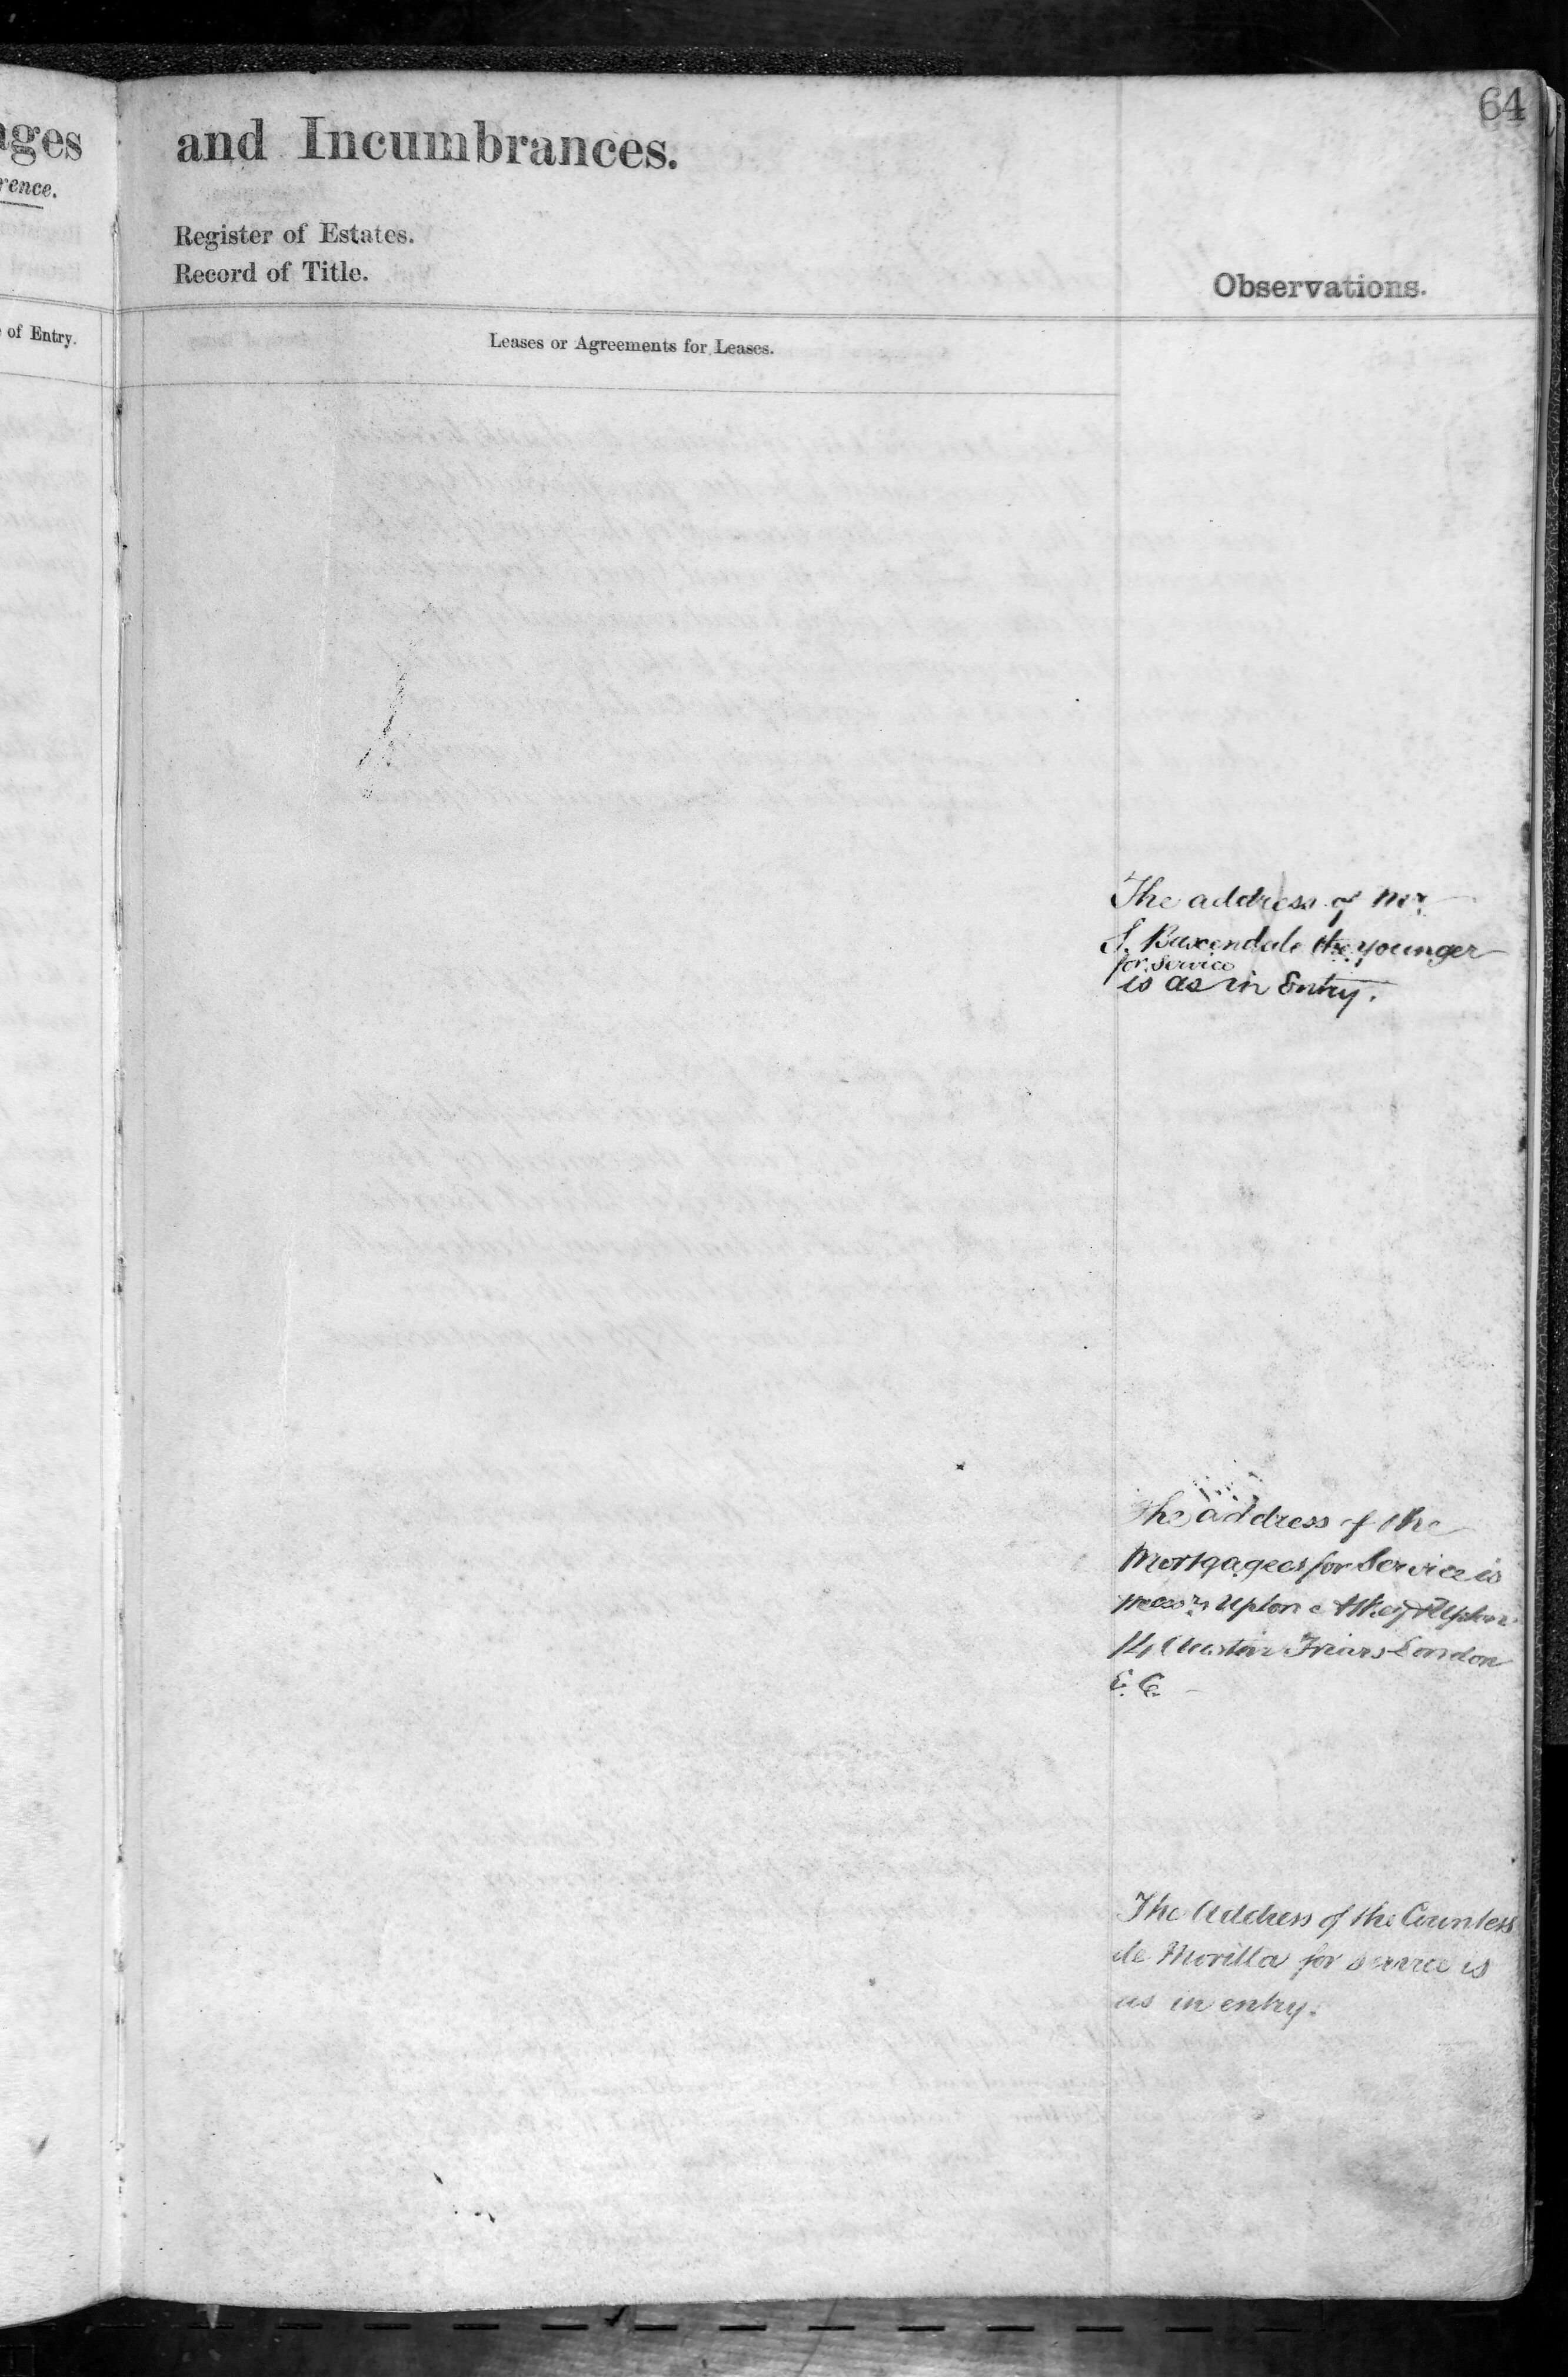 64
and Incumbrances.
Register of Estates.
Record of Title.
Observations.
of Entry.
Leases or Agreements for Leases.
The address of Mr.
S. Baxendale the younger
for service
is as in Entry.
The address of the
Mortgagees for Service is
Messrs Upton & Upton
14 Austin Friars London
E. C.
The Address of the Countess
de Morilla for service is
as in entry.